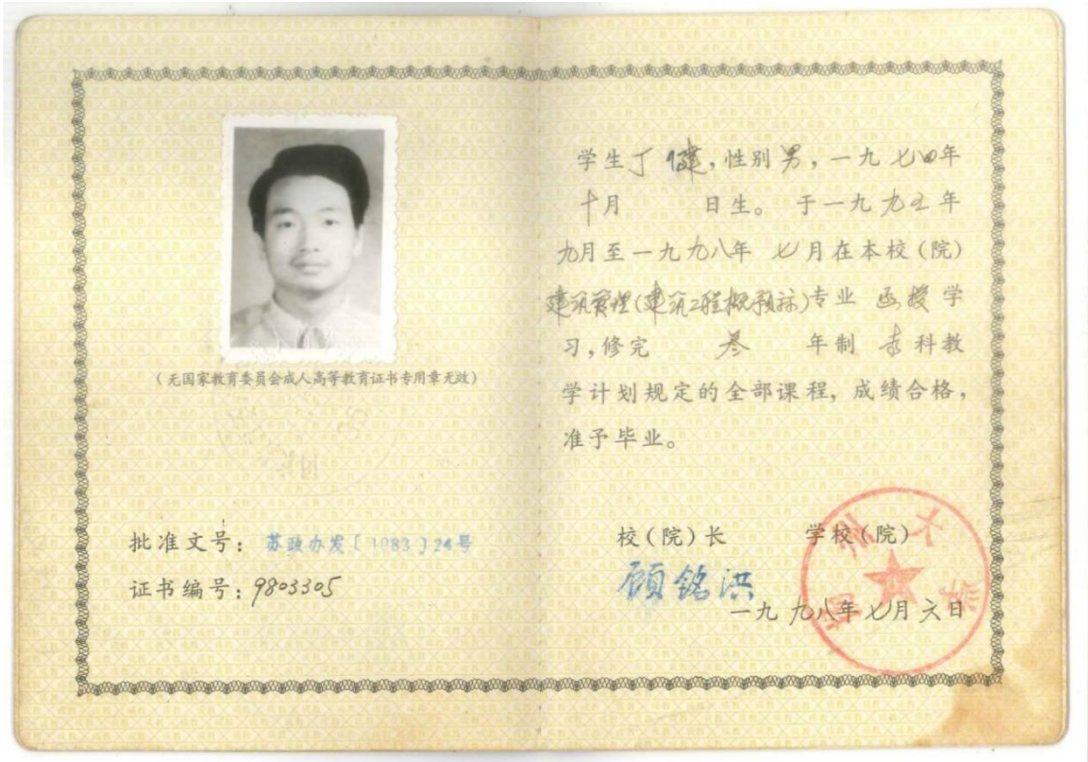 (无国家教育委员会成人高等教育证书专用章无效)
批准文号：苏政办发〔1983〕24号
证书编号：9803305
学生丁健，性别男，一九七四年
十月 日生。于一九九五年
九月至一九九八年 七月在本校(院)
建筑管理(建筑工程概预算)专业 函授学
习，修完 叁 年制 专科教
学计划规定的全部课程，成绩合格，
准予毕业。
校(院)长 学校(院)
顾铭洪
一九九八年七月六日
大学